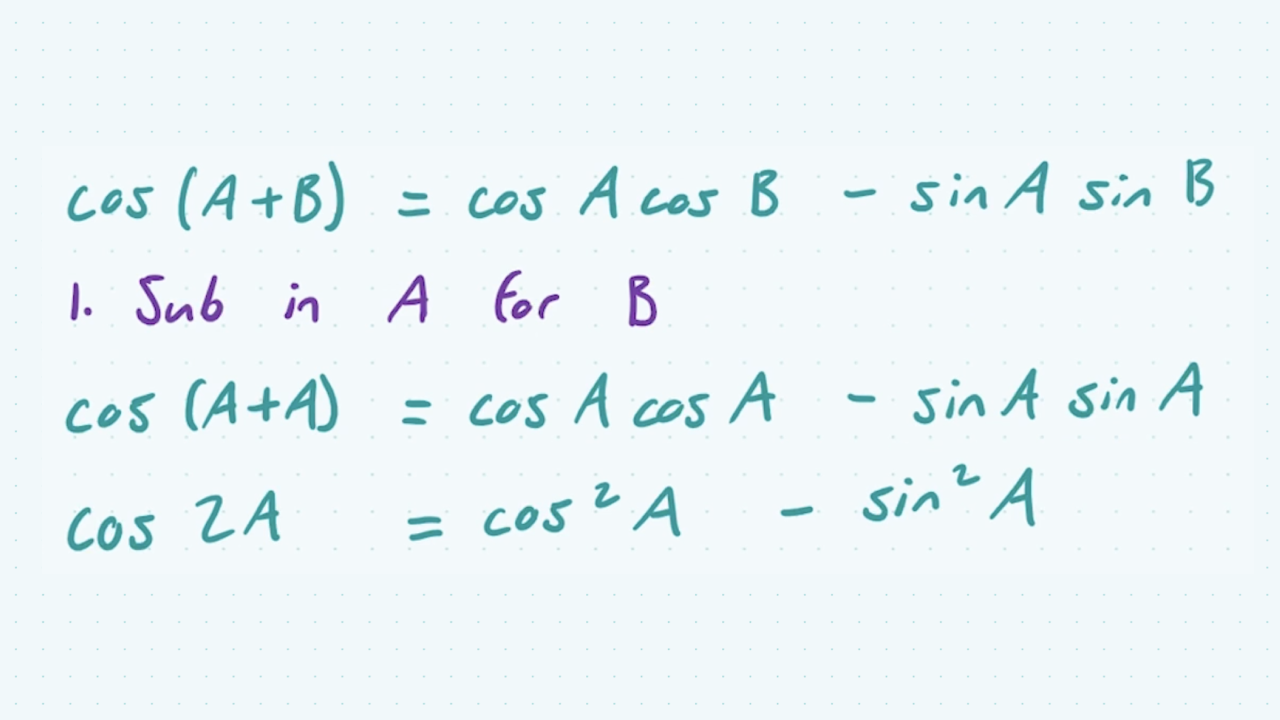 cos (A+B) = cos A cos B - sin A sin B
1. Sub in A for B
cos (A+A) = cos A cos A - sin A sin A
cos 2A = cos² A - sin² A